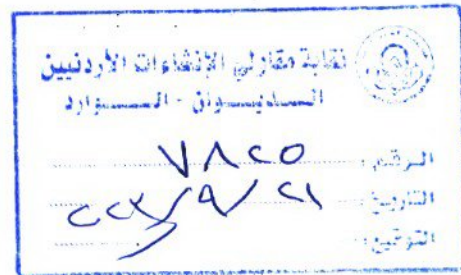 نقابة مقاولي الإنشاءات الأردنيين
الديوان - الوارد
الرقم: ٧٨٢٥
التاريخ: ٢٢٣/٩/٢١
التوقيع: